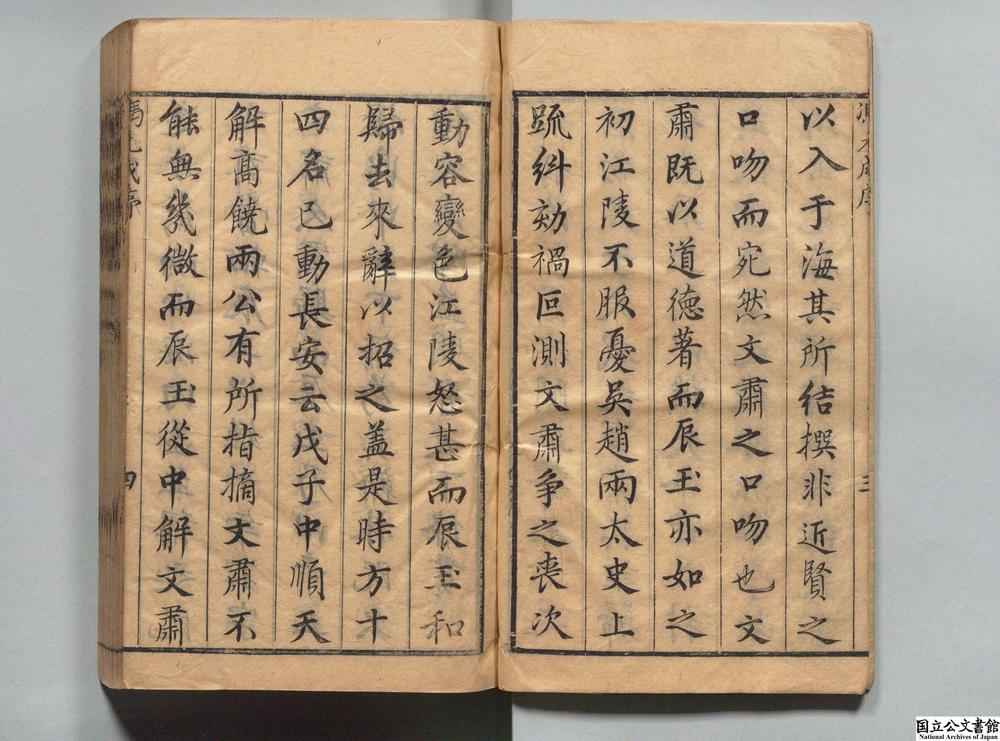 以入于海其所結撰非近賢之
口吻而宛然文肅之口吻也文
肅既以道德著而辰玉亦如之
初江陵不服憂吳趙兩太史上
疏糾劾禍叵測文肅爭之喪次
三
動容變色江陵怒甚而辰玉和
歸去來辭以招之盖是時方十
四名已動長安云戊子中順天
解高饒兩公有所指摘文肅不
能無幾微而辰玉從中解文肅
四
国立公文書館
National Archives of Japan